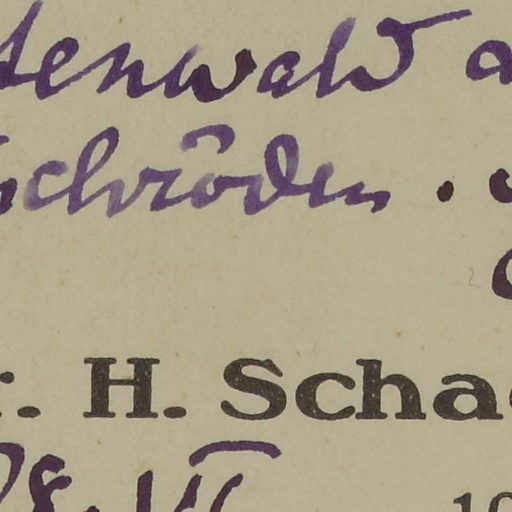 tenwald a
schröden.
r. H. Scha
28. VI
10